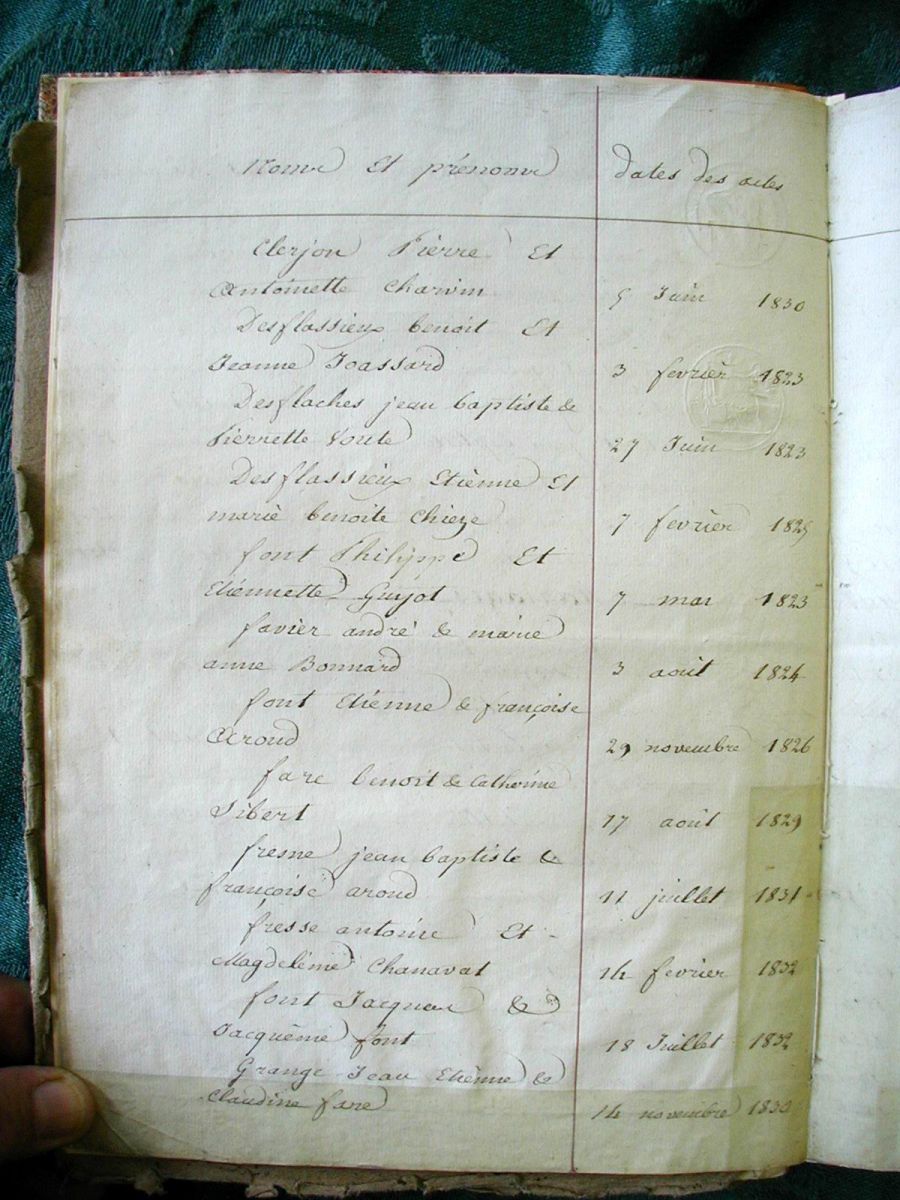 Noms Et prénoms dates des actes
Clerjon Pierre Et
Antoinette Charvin 5 Juin 1830
Desflassieux benoit Et
Jeanne Joassard 3 fevrier 1823
Desflaches jean baptiste &
Pierrette Voute 27 Juin 1823
Desflassieux Etienne Et
marie benoite Chieze 7 fevrier 1825
font Philippe Et
Etiennette Guyot 7 mai 1823
favier andré & marie
anne Bonnard 3 août 1824
font Etienne & françoise
Aroud 29 novembre 1826
fare benoit & Catherine
Sibert 17 août 1829
fresne jean baptiste &
françoise aroud 11 juillet 1831
fresse antoine Et
Magdeleine Chanavat 14 fevrier 1832
font Jacques &
Jacquême font 18 Juillet 1832
Grange Jean Etienne &
Claudine fare 14 novembre 1830